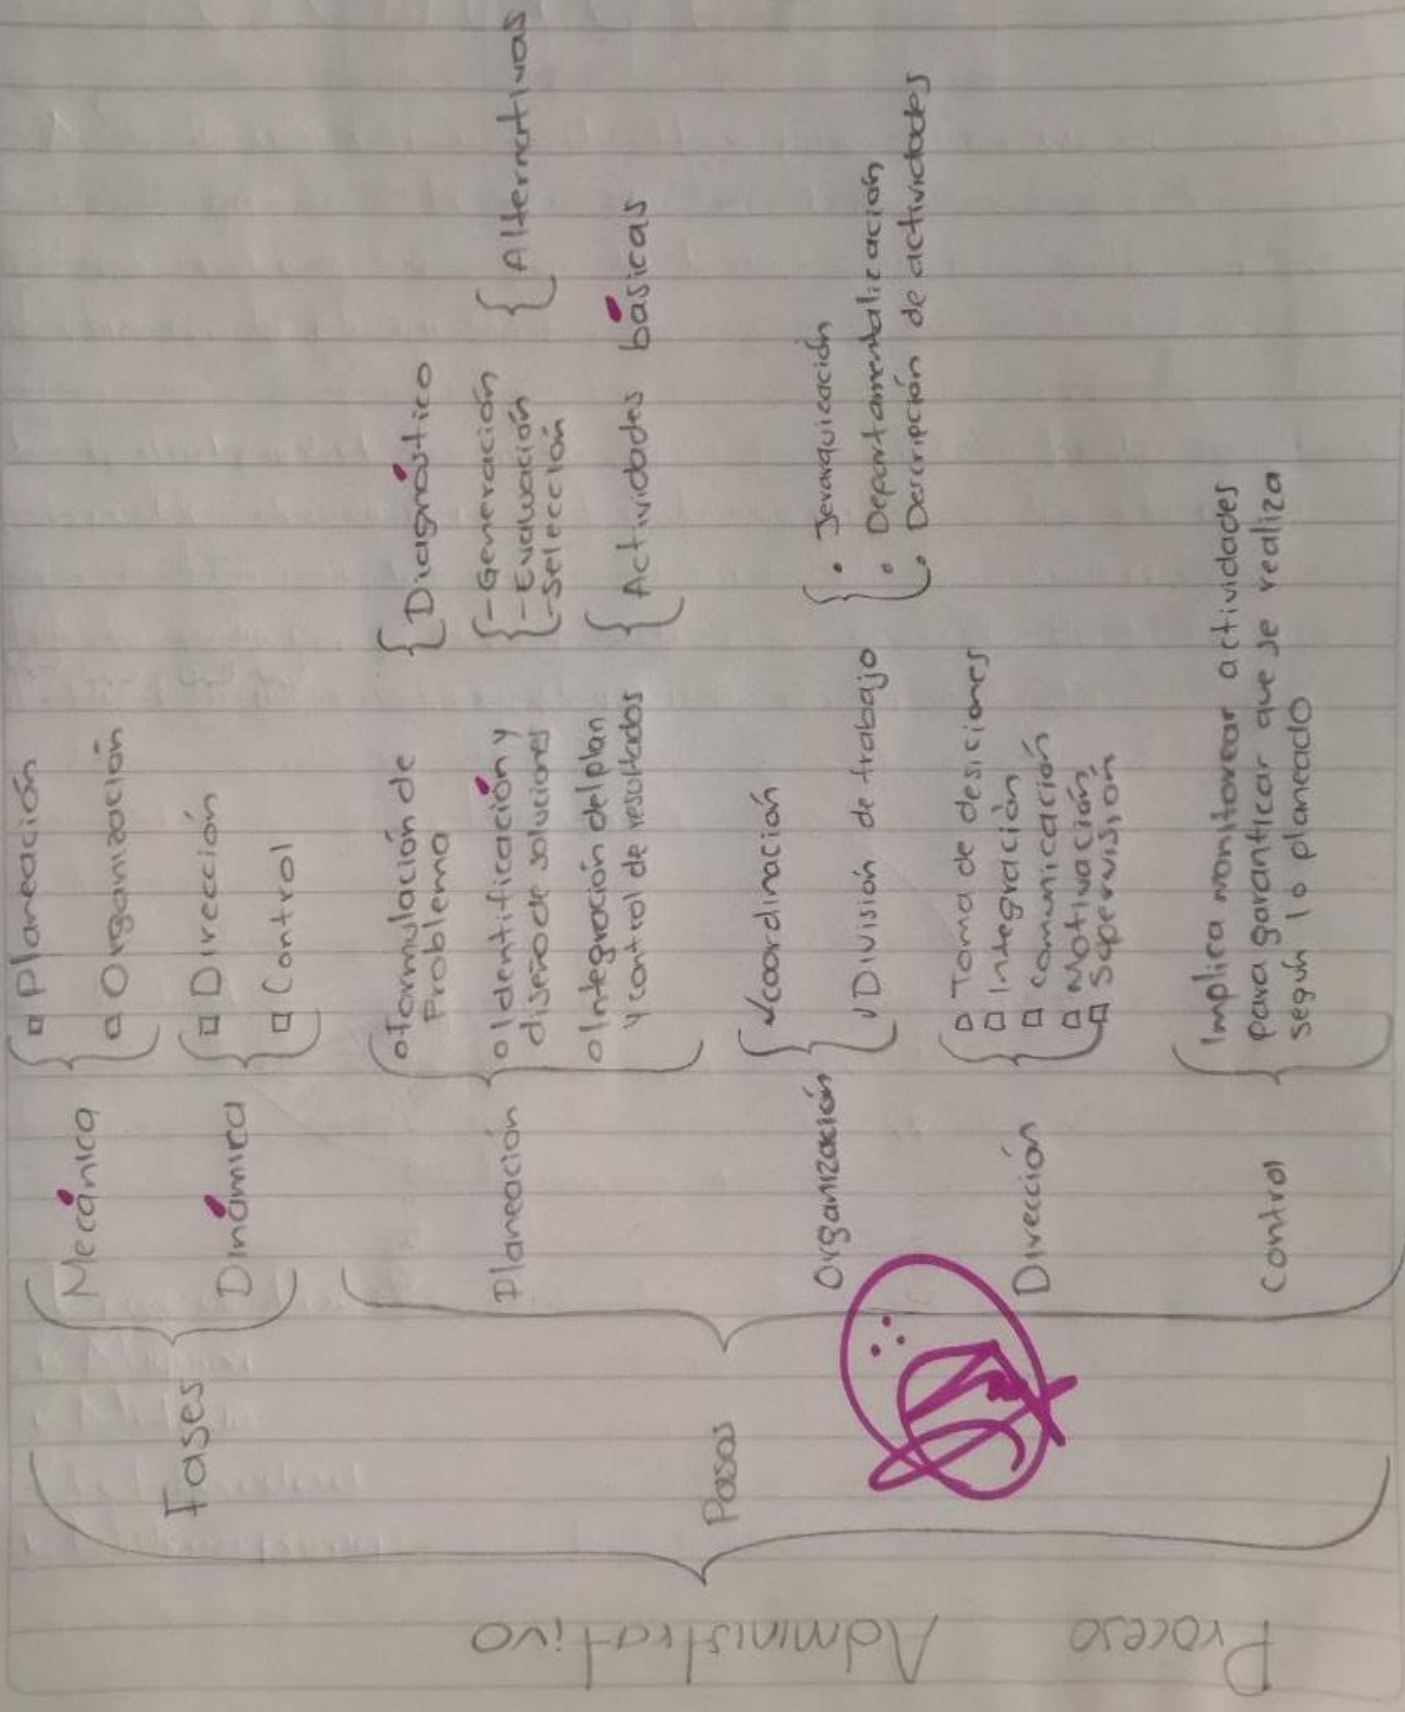 Proceso Administrativo
Fases
Mecánica
▫ Planeación
▫ Organización
Dinámica
▫ Dirección
▫ Control
Pasos
Planeación
o Formulación de
Problema
{ Diagnóstico
o Identificación y
diseño de soluciones
- Generación
- Evaluación
- Selección
{ Alternativas
o Integración del plan
y control de resultados
{ Actividades básicas
Organización
✓ coordinación
✓ División de trabajo
• Jerarquización
• Departamentalización
• Descripción de actividades
Dirección
▫ Toma de desiciones
▫ Integración
▫ comunicación
▫ Motivación
▫ Supervisión
Control
Implica monitorear actividades
para garantizar que se realiza
según lo planeado